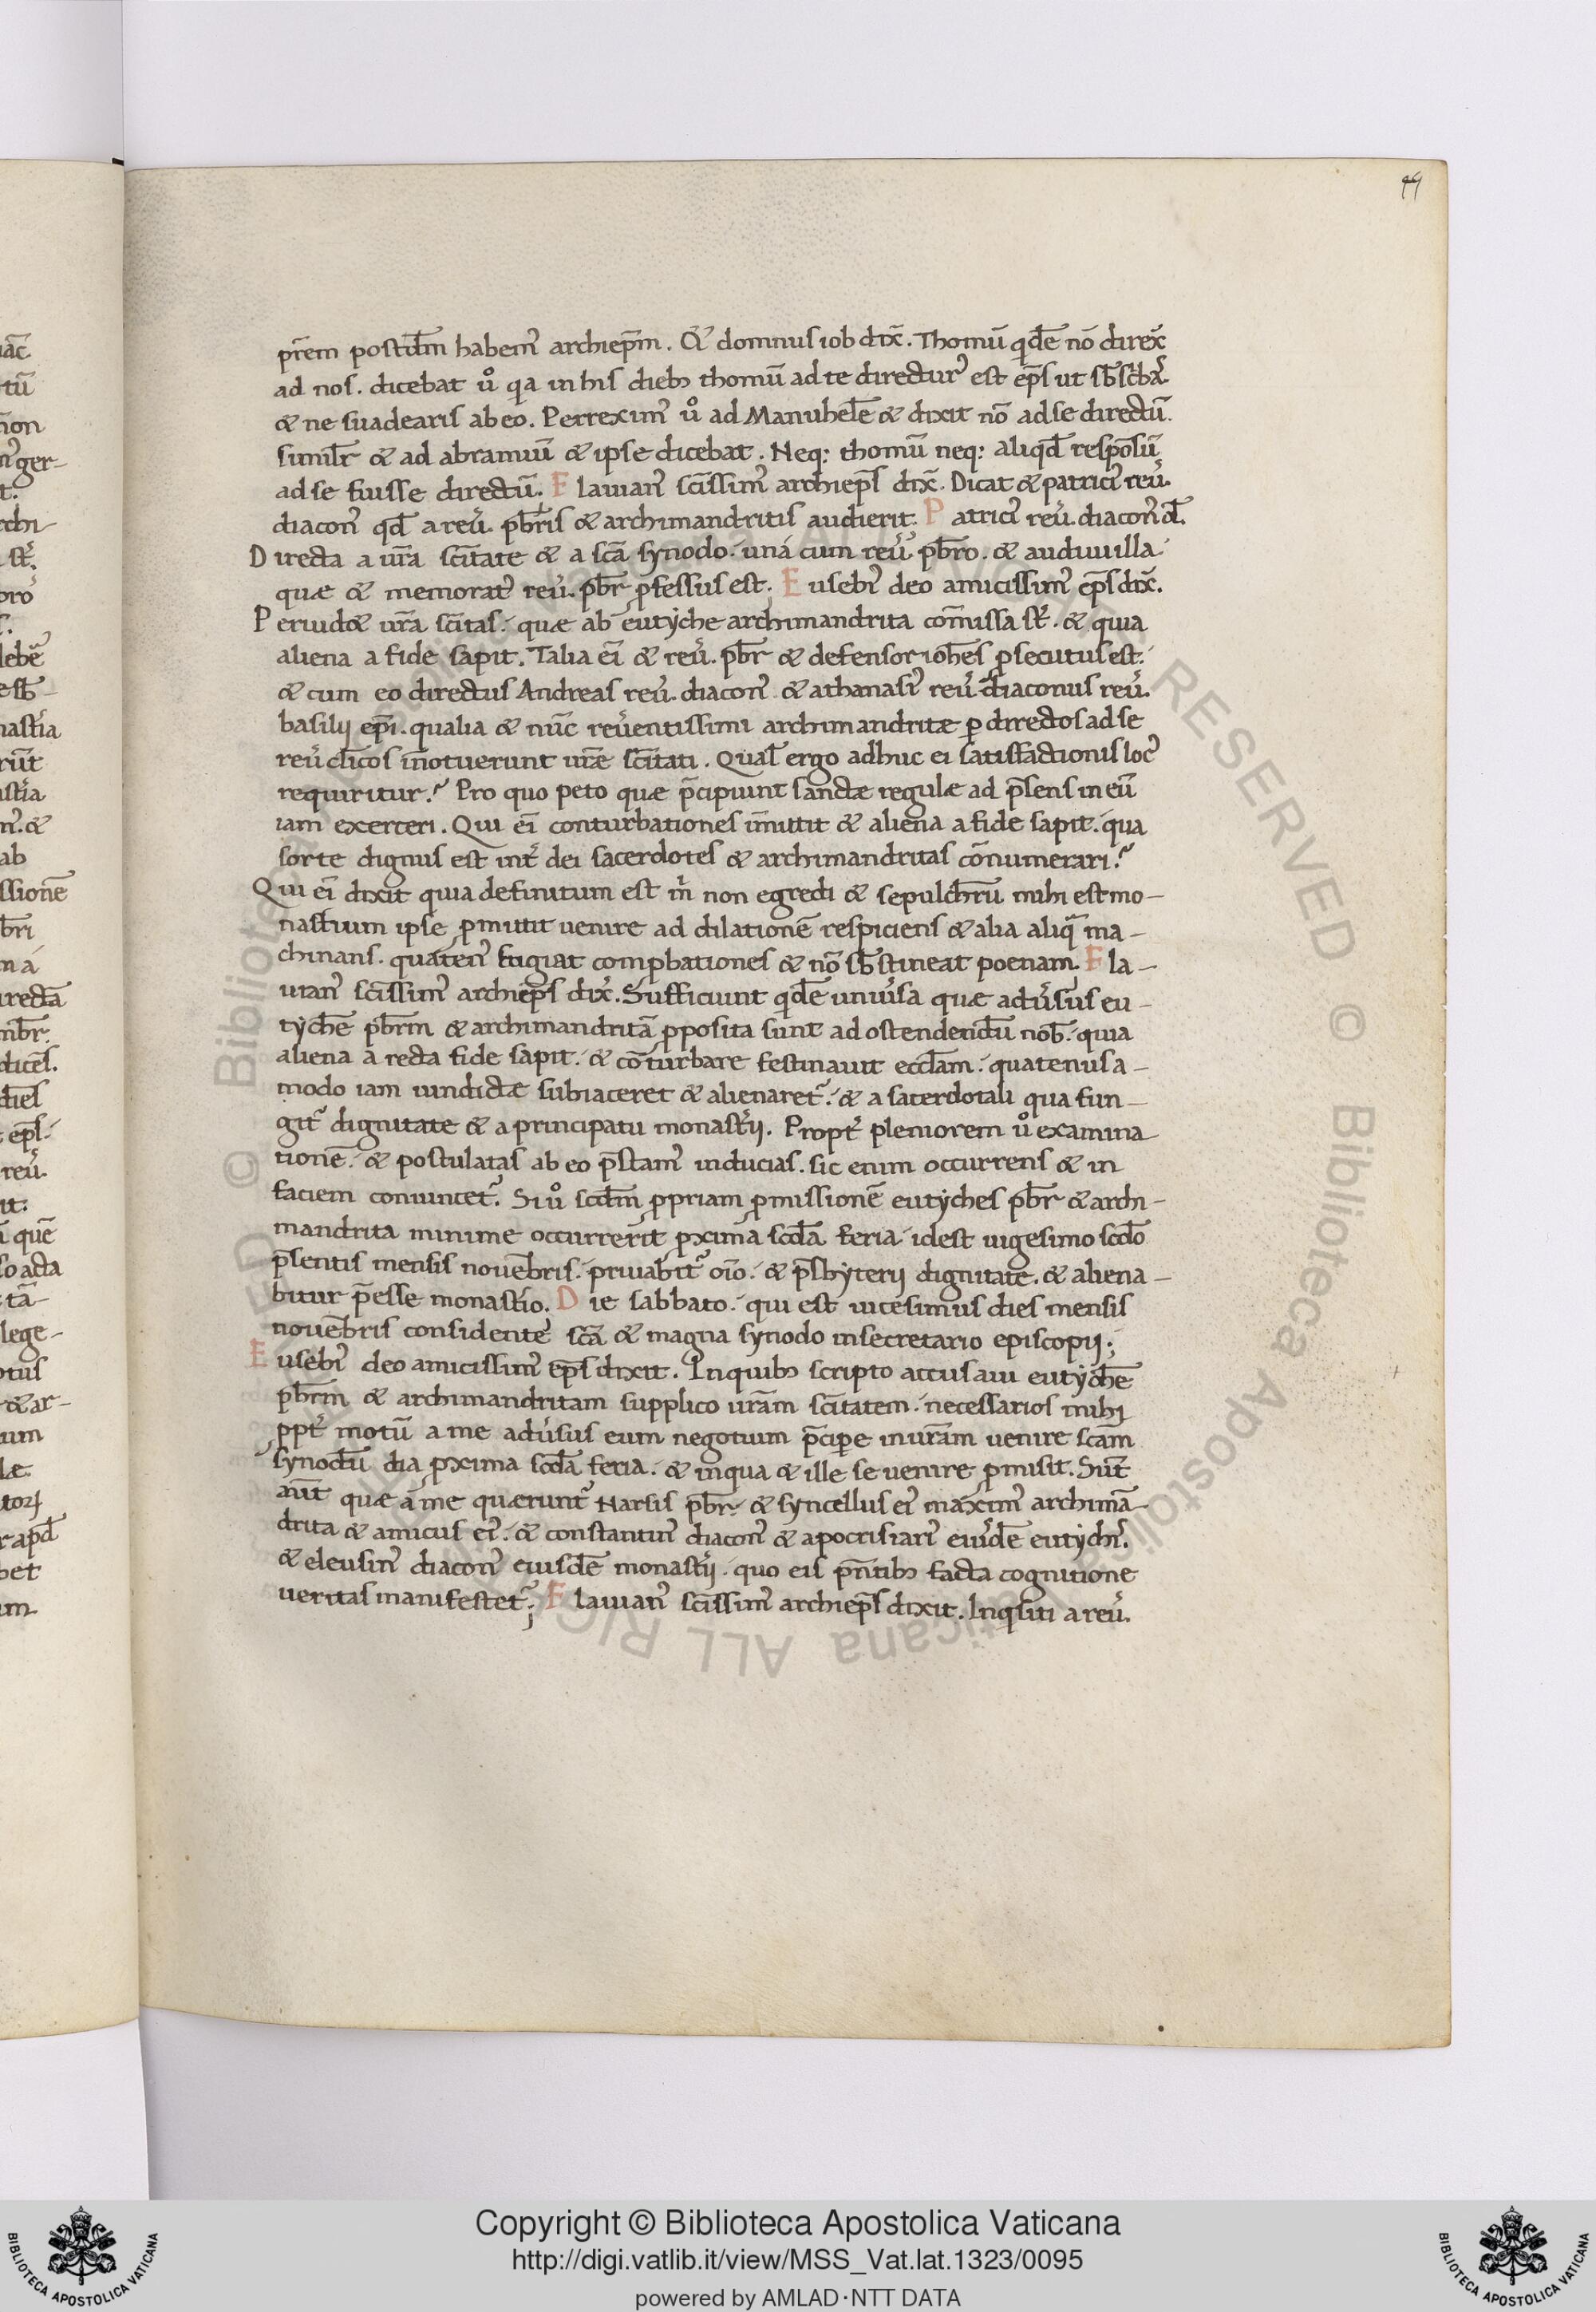 44
pr̄em postdm̄ habem̾ archiep̄m. Et domnus iob dix̄. Thomū qdē nō direx̄
ad nos. dicebat uͦ qa in his dieb; thomū ad te directur̾ est ep̄s ut sb̄scb̄a.
& ne suadearis ab eo. Perrexim̾ uͦ ad Manuhelē & dixit nō ad se directū.
simil̄r & ad abramiū & ipse dicebat. Neq: thomū neq: aliqd̄ respōsū
ad se fuisse directū. Flauian̾ sc̄issim̾ archiep̄s dix̄. Dicat & patrici̾ reu̾.
diacon̾ qd̄ a reu̾. pb̄ris & archimandritis audierit. Patrici̾ reu̾. diacon̾ d̄.
Directa a ur̄a sc̄itate & a sc̄a synodo. uná cum reu̾. pb̄ro. & audiui illa
quæ & memorat̾ reu̾. pb̄r p̄fessus est. Eusebi̾ deo amicissim̾ ep̄s dix̄.
Peruidet ur̄a sc̄itas. quæ ab eutyche archimandrita com̄issa st̄. & quia
aliena a fide sapit. Talia ei̾ & reu̾. pb̄r & defensor ioh̄es p̄secutus est.
& cum eo directus Andreas reu̾. diacon̾ & athanasi̾ reu̾. diaconus reu̾.
basilij ep̄i. qualia & nūc reu̾entissimi archimandritæ p̱ directos ad se
reu̾ cl̄icos inotuerunt ur̄æ sc̄itati. Qual̄ ergo adhuc ei satisfactionis loc̾
requiritur? Pro quo peto quæ p̄cipiunt sanctæ regulæ ad p̄sens in eū
iam exerceri. Qui ei̾ conturbationes im̄ittit & aliena a fide sapit. qua
sorte dignus est int̾ dei sacerdotes & archimandritas cōnumerari?
Qui ei̾ dixit quia definitum est m̄ non egredi & sepulchrū mihi est mo-
nast̄ium ipse p̱mittit uenire ad dilationē respiciens & alia aliq̄ ma-
chinans. quaten̾ fugiat comp̱bationes & nō sb̄stineat poenam. Fla-
uian̾ sc̄issim̾ archiep̄s dix̄. Sufficiunt qdē uniu̾sa quæ adu̾sus eu-
tychē pb̄rm & archimandritā p̱posita sunt ad ostendendū nob̄. quia
aliena a recta fide sapit. & cōturbare festinauit eccl̄am. quatenus a-
modo iam uindictæ subiaceret & alienaret̾. & a sacerdotali qua fun-
git̾ dignitate & a principatu monast̾ij. Propt̾ pleniorem uͦ examina
tionē. & postulatas ab eo p̄stam̾ inducias. sic enim occurrens & in
faciem conuincet̾. Si uͦ scd̄m p̱priam p̱missionē eutyches pb̄r & archi-
mandrita minime occurrerit p̱xima scd̄a feria idest uigesimo scd̄o
p̄sentis mensis nouēbris. priuabit̾ oīo. & p̄sbyterij dignitate. & aliena-
bitur p̄esse monast̄io. Die sabbato. qui est uicesimus dies mensis
nouēbris considente sc̄a & magna synodo in secretario episcopij;
Eusebi̾ deo amicissim̾ ep̄s dixit. In quib; scripto accusaui eutychē
pb̄rm & archimandritam supplico ur̄am sc̄itatem. necessarios mihi
ppt̾ motū a me adu̾sus eum negotium p̄cipe in ur̄am uenire sc̄am
synodū dia p̱xima scd̄a feria. & in qua & ille se uenire p̱misit. Sūt
aūt quæ a me quærunt̾ Narsis pb̄r. & syncellus ei̾ maxim̾ archimā-
drita & amicus ei̾. & constantin̾ diacon̾ & apocrisiari̾ eiu̾dē eutych̾.
& eleusin̾ diacon̾ eiusdē monast̾ij. quo eis p̄ntib; facta cognitione
ueritas manifestet̾; Flauian̾ sc̄issim̾ archiep̄s dixit. Inqsiti a reu̾.
Copyright © Biblioteca Apostolica Vaticana
http://digi.vatlib.it/view/MSS_Vat.lat.1323/0095
powered by AMLAD·NTT DATA